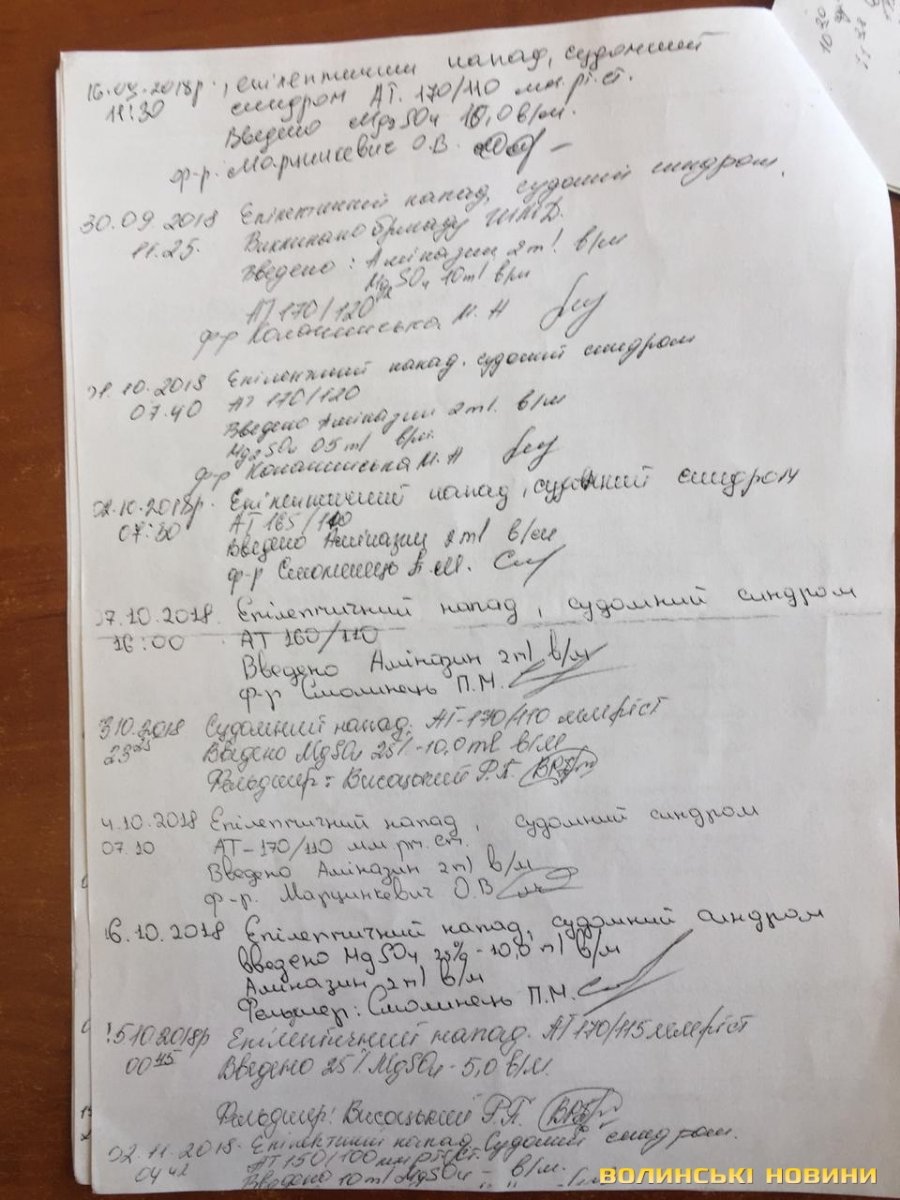 16.09.2018р., епілептичний напад, судомний
11:30 синдром АТ. 170/110 мм.рт.ст.
Введено MgSO4 10,0 в/м.
ф-р. Марцинкевич О.В.
30.09.2018 Епілектичний напад, судомий синдром.
11.25. Викликано бригаду ШМД.
Введено: Аміназин 2ml в/м
MgSO4 10ml в/м
АТ 170/120
ф-р М. А
1.10.2018 Епілектичний напад. судомий синдром
07.40 АТ 170/120
Введено Аміназин 2ml. в/м
MgSO4 05ml в/м.
ф-р М. А
02.10.2018р. Епілептичний напад, судомний синдром
07:30 АТ 165/110
Введено Аміназин 2ml в/м
ф-р Смолинець П.М.
07.10.2018 Епілептичний напад, судомний синдром
16:00 АТ 160/110
Введено Аміназин 2ml в/м
ф-р Смолинець П.М.
3.10.2018 Судомний напад. АТ-170/110 мм рт ст
23 25 Введено MgSO4 25%-10,0 ml в/м
Фельдшер: Висоцький Р.П.
4.10.2018 Епілептичний напад, судомний синдром
07.10 АТ-170/110 мм рт. ст.
Введено Аміназин 2ml в/м
ф-р. Марцинкевич О.В
6.10.2018 Епілептичний напад, судомний синдром
Введено MgSO4 25% - 10,0 ml в/м
Аміназин 2ml в/м
Фельдшер: Смолинець П.М.
5.10.2018р Епілептичний напад. АТ 170/115 мм рт ст
00 45 Введено 25% MgSO4 - 5,0 в/м.
Фельдшер: Висоцький Р.П.
02.11.2018. Епілектичний напад. Судомий синдром.
04 42 АТ 150/100 мм рт.ст.
Введено 10ml MgSO4 - в/м.
ВОЛИНСЬКІ НОВИНИ